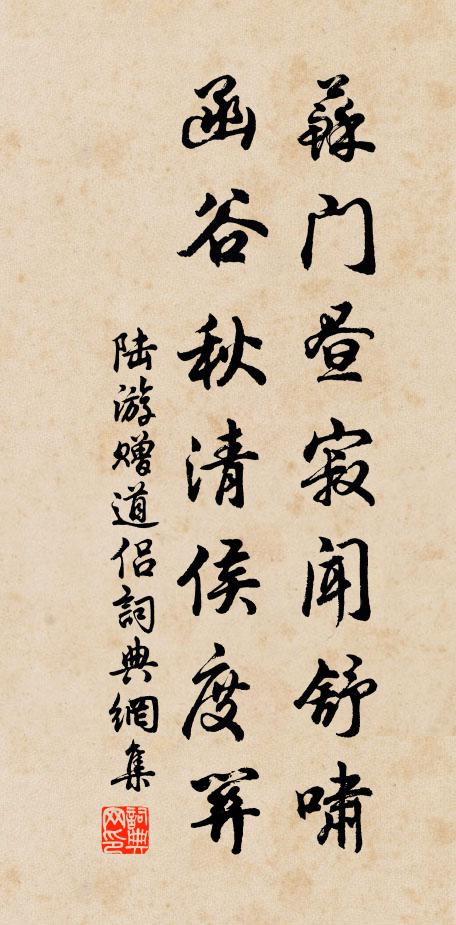 蘇门昼寂闻舒嘯
函谷秋清侯度关
陆游赠道侣詞典網集
詞典网印